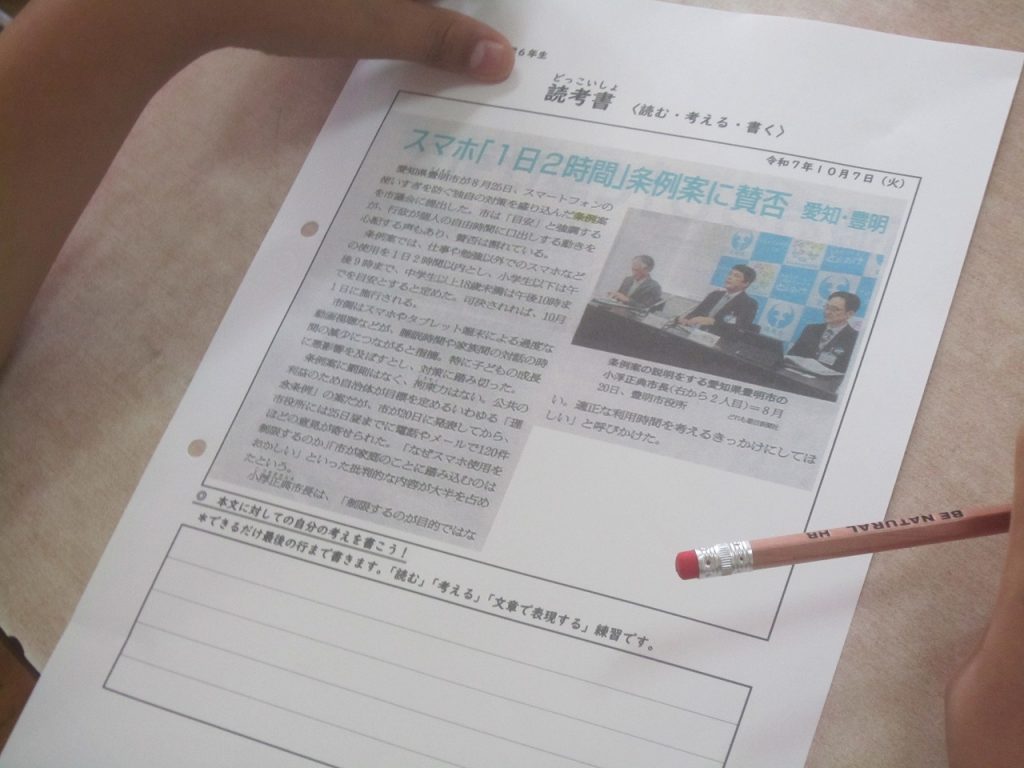 6年生
どっこいしょ
読考書 〈読む・考える・書く〉
令和7年10月7日（火）
スマホ「1日2時間」条例案に賛否 愛知・豊明
愛知県豊明市が8月25日、スマートフォンの
使いすぎを防ぐ独自の対策を盛り込んだ条例案
を市議会に提出した。市は「目安」と強調する
が、行政が個人の自由時間に口出しする動きを
心配する声もあり、賛否は割れている。
条例案では、仕事や勉強以外でのスマホなど
の使用を1日2時間以内とし、小学生以下は午
後9時まで、中学生以上18歳未満は午後10時ま
でを目安とすると定めた。可決されれば、10月
1日に施行される。
市側はスマホやタブレット端末による過度な
動画視聴などが、睡眠時間や家族間の対話の時
間の減少につながると指摘。特に子どもの成長
に悪影響を及ぼすとし、対策に踏み切った。
条例案に罰則はなく、拘束力はない。公共の
利益のため自治体が目標を定めるいわゆる「理
念条例」の案だが、市が20日に発表してから、
市役所には25日昼までに電話やメールで120件
ほどの意見が寄せられた。「なぜスマホ使用を
制限するのか」「市が家庭のことに踏み込むのは
おかしい」といった批判的な内容が大半を占め
たという。
小浮正典市長は、「制限するのが目的ではな
条例案の説明をする愛知県豊明市の
小浮正典市長（右から2人目）＝8月
20日、豊明市役所
い。適正な利用時間を考えるきっかけにしてほ
しい」と呼びかけた。
◎ 本文に対しての自分の考えを書こう！
＊できるだけ最後の行まで書きます。「読む」「考える」「文章で表現する」練習です。
BE NATURAL HB